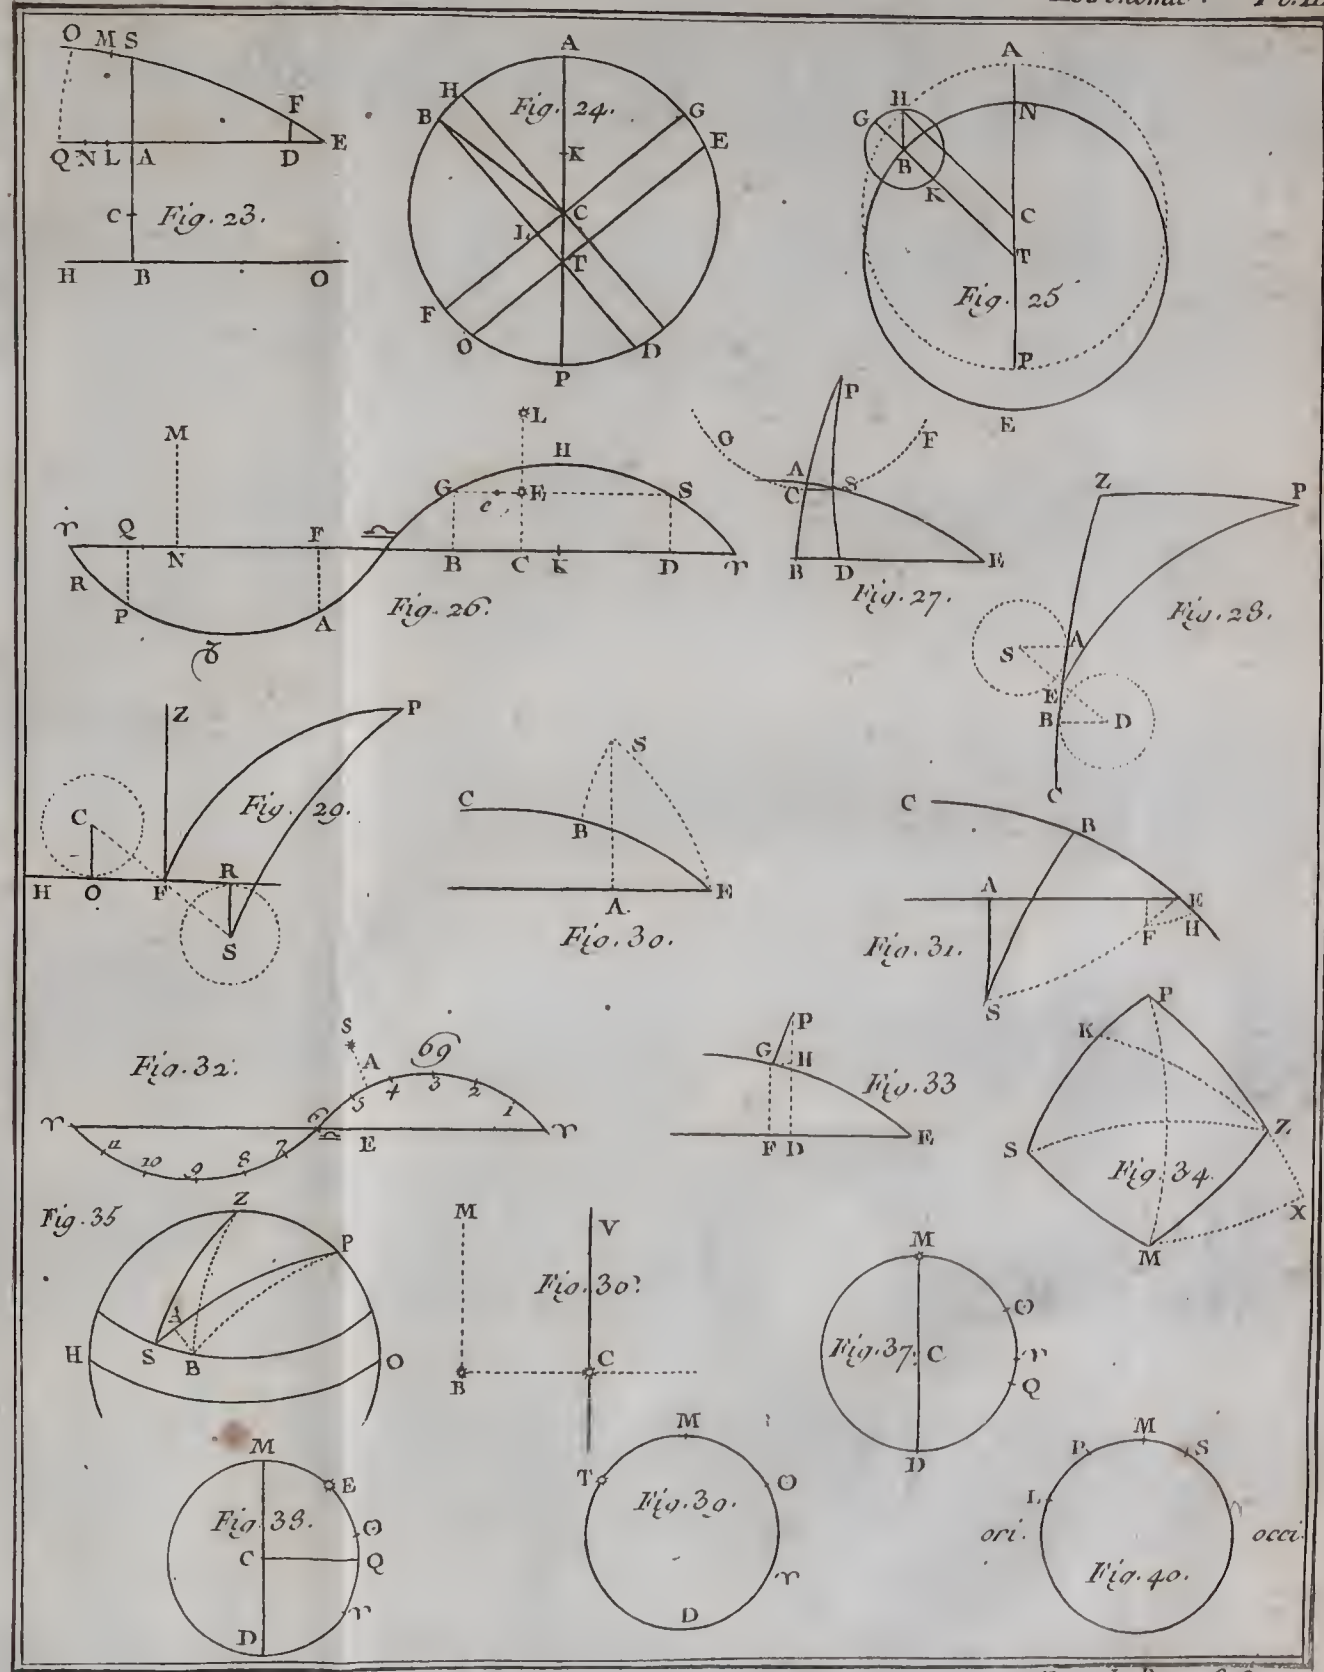 O M S
F
Q N L A D E
C Fig. 23.
H B O
A
H
B Fig. 24. G
E
K
C
L
T
F
O D
P
A
H
G N
B
K
C
T
Fig. 25
P
E
M L
H
G e E S
♈ Q F ♎
N B C K D ♈
R
P A Fig. 26.
♉
P
G F
A
C S
B D E
Fig. 27.
Z P
Fig. 28.
S A
E
B D
C
Z P
C Fig. 29.
R
H O F
S
S
C
B
E
A.
Fig. 30.
C B
A E
F H
Fig. 31.
S
S
A ♋
Fig. 32.
5 4 3 2 1
♈ ♎ E ♈
11 10 9 8 7
P
G H
Fig. 33
F D E
P
K
Z
S
Fig. 34.
X
M
Fig. 35
Z
P
A
H S B O
M V
Fig. 30.
B C
M
ʘ
Fig. 37. C ♈
Q
D
M
E
Fig. 38.
ʘ
C Q
♈
D
M
T ʘ
Fig. 39.
♈
D
P M S
L
ori. occi.
Fig. 40.